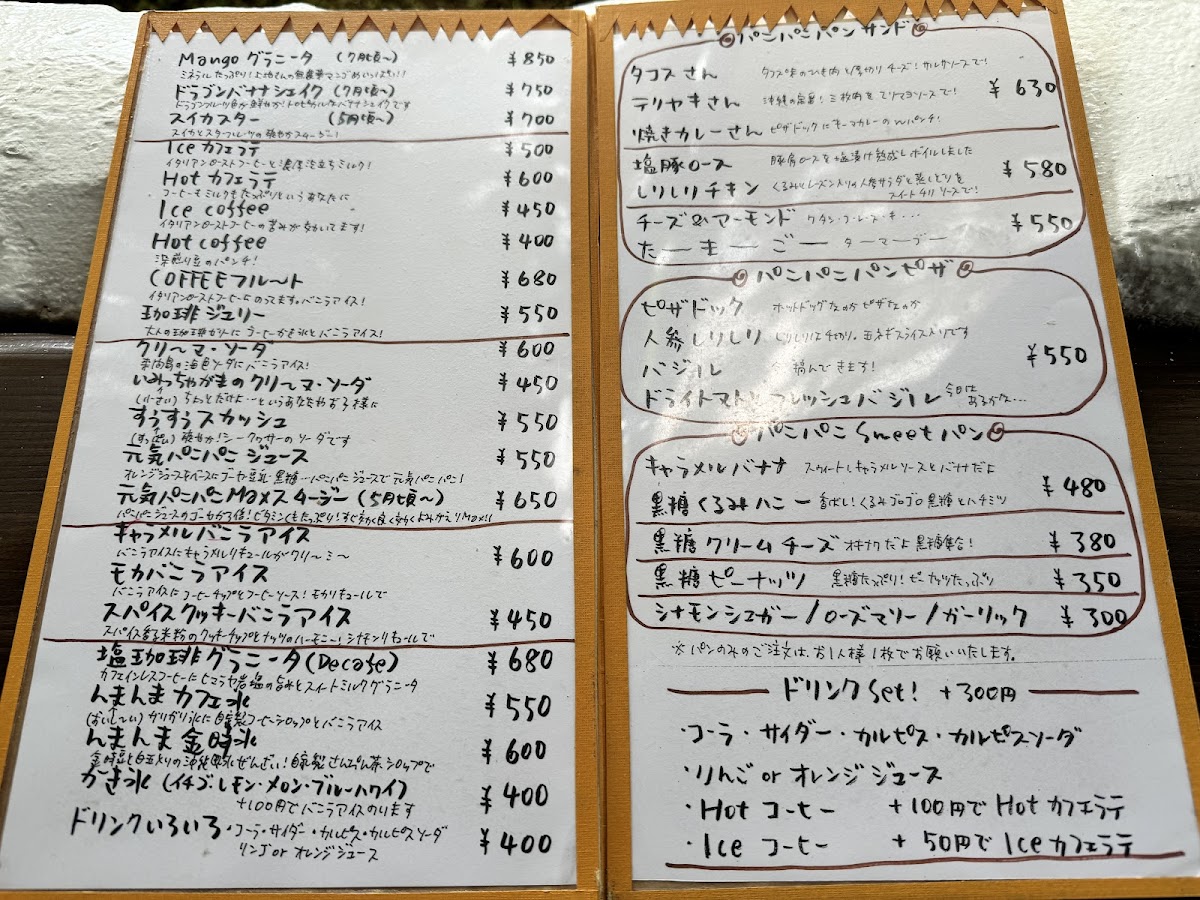 Mango グラニータ (7月頃〜) ¥850
ミネラルたっぷり!
ドラゴンバナナシェイク (7月頃〜) ¥750
ドラゴンフルーツ色が鮮やか!トロピカルなバナナシェイクです
スイカスター (5月頃〜) ¥700
スイカとスターフルーツの爽やかスムージー!
Ice カフェラテ ¥500
イタリアンローストコーヒーと濃厚泡立ちミルク!
Hot カフェラテ ¥600
コーヒーもミルクもたっぷりというあなたに
Ice coffee ¥450
イタリアンローストコーヒーの苦みが効いてます!
Hot coffee ¥400
深煎り豆のパンチ!
COFFEE フルート ¥680
イタリアンローストコーヒーにのってます。バニラアイス!
珈琲ジェリー ¥550
大人の珈琲ゼリーにコーヒーかき氷とバニラアイス!
クリ〜マ・ソーダ ¥600
海色ソーダにバニラアイス!
いみっちゃがまのクリ〜マ・ソーダ ¥450
(小さい) ちょっとだけ…というあなたやお子様に
すぅすぅスカッシュ ¥550
(すっぱい) 爽やか!シークヮサーのソーダです
元気パニパニジュース ¥550
オレンジジュースベースにゴーヤ・豆乳・黒糖…パニパニジュースで元気パニパニ!
元気パニパニMaxスムージー (5月頃〜) ¥650
パニパニジュースのゴーヤが3倍!ビタミンCもたっぷり!
キャラメルバニラアイス
バニラアイスにキャラメルリキュールがクリ〜ミ〜 ¥600
モカバニラアイス
バニラアイスにコーヒーチップとコーヒーソース!モカリキュールで
スパイスクッキーバニラアイス ¥450
スパイス香る米粉のクッキーチップとナッツのハーモニー!シナモンリキュールで
塩珈琲グラニータ(Decafe) ¥680
カフェインレスコーヒーにヒマラヤ岩塩の旨みとスイートミルクグラニータ
んまんまカフェ氷 ¥550
(おいしてぃ) ガリガリ氷に自家製コーヒーシロップとバニラアイス
んまんま金時氷 ¥600
金時豆と白玉入りの沖縄風氷ぜんざい!自家製さんぴん茶シロップで
かき氷 (イチゴ・レモン・メロン・ブルーハワイ) ¥400
+100円でバニラアイスのります
ドリンクいろいろ ・コーラ・サイダー・カルピス・カルピスソーダ ¥400
リンゴ or オレンジジュース
パニパニパンサンド
タコスさん タコス味のひき肉と厚切りチーズ!サルサソースで!
テリヤキさん 沖縄の定番!三枚肉をテリマヨソースで! ¥630
焼きカレーさん ピザドックにキーマカレーのWパンチ!
塩豚ロース 豚肩ロースを塩漬け熟成しボイルしました
しりしりチキン くるみとレーズン入りの人参サラダと蒸しどりを ¥580
スイートチリソースで!
チーズ&アーモンド ¥550
たーまーごー ターマーゴー
パニパニパンピザ
ピザドック ホットドッグなのかピザなのか
人参しりしり しりしりは千切り。玉ネギスライス入りです
バジル 摘んできます! ¥550
ドライトマト&フレッシュバジル 今日はあるかな…
パニパニ Sweetパン
キャラメルバナナ スウィートなキャラメルソースとバナナだよ
黒糖くるみハニー 香ばし!くるみゴロゴロ黒糖とハチミツ ¥480
黒糖クリームチーズ オキナワだよ黒糖集合! ¥380
黒糖ピーナッツ 黒糖たっぷり!ピーナッツたっぷり ¥350
シナモンシュガー/ローズマリー/ガーリック ¥300
※パンのみのご注文は、お1人様1枚でお願いいたします。
ドリンクSet! +300円
・コーラ・サイダー・カルピス・カルピスソーダ
・りんご or オレンジジュース
・Hot コーヒー +100円で Hot カフェラテ
・Ice コーヒー +50円で Ice カフェラテ